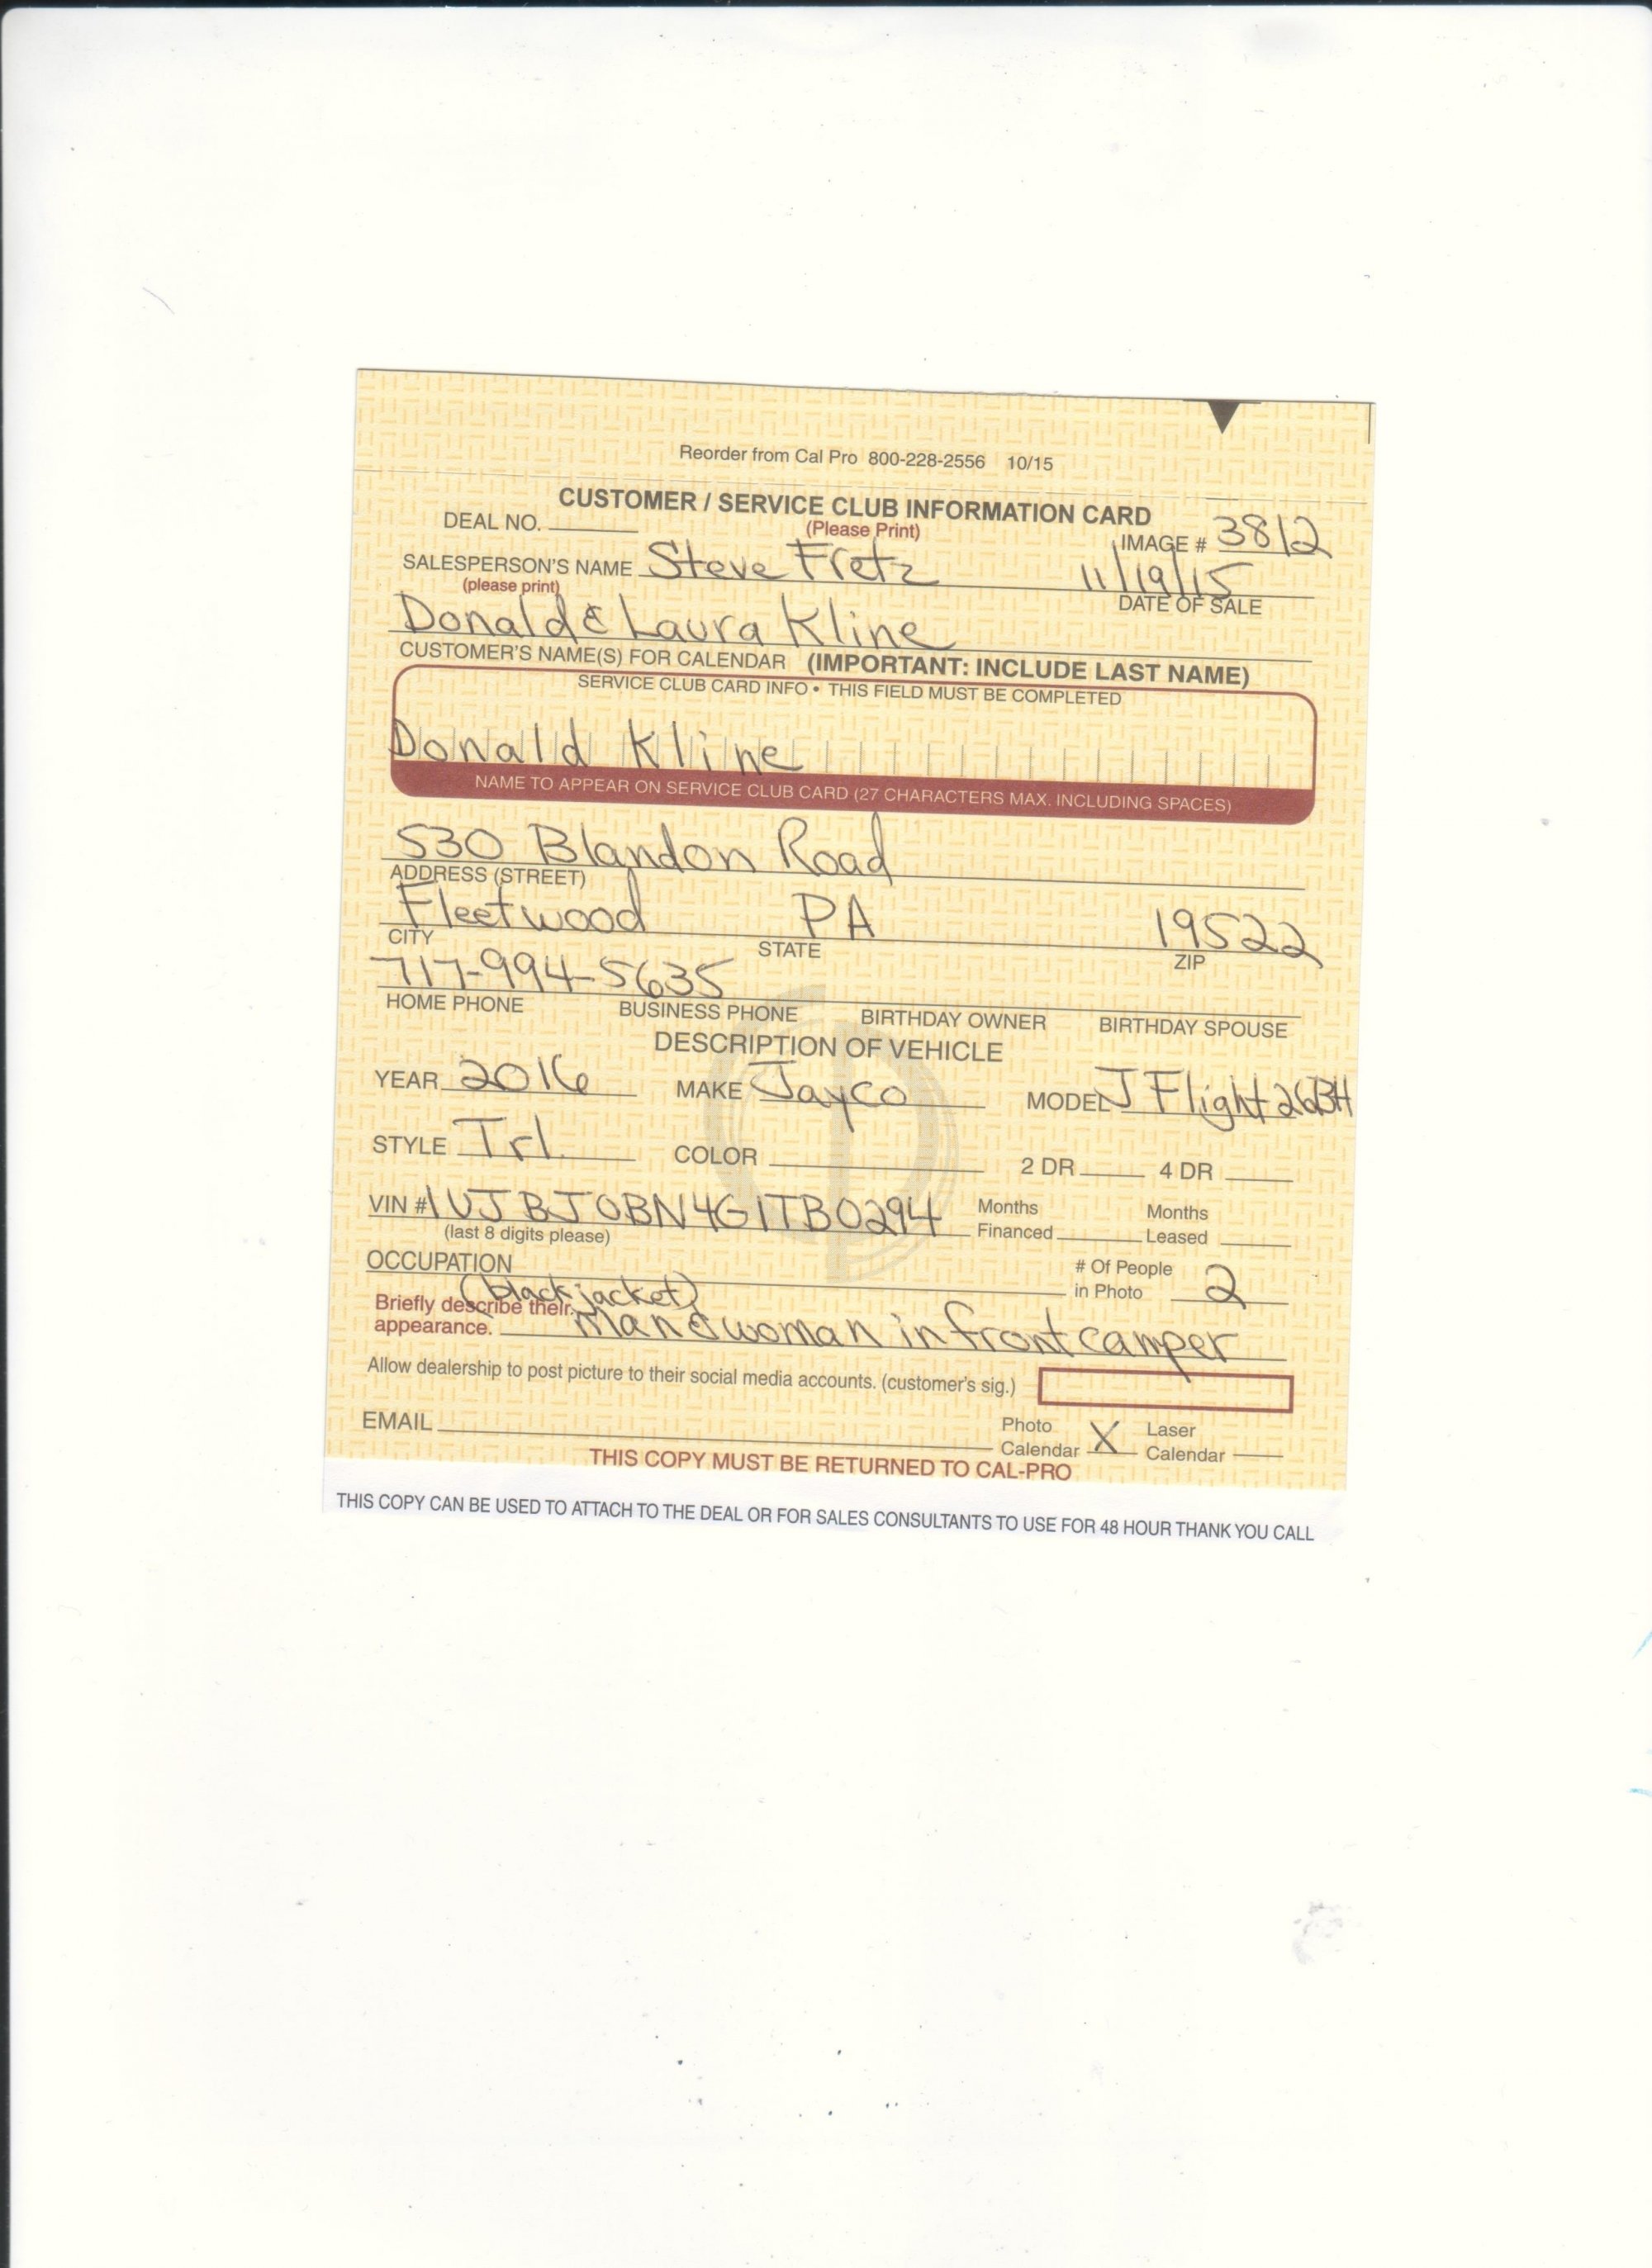 Reorder from Cal Pro 800-228-2556 10/15
CUSTOMER / SERVICE CLUB INFORMATION CARD
DEAL NO. (Please Print) IMAGE # 3812
SALESPERSON'S NAME Steve Fretz 11/19/15
(please print) DATE OF SALE
Donald & Laura Kline
CUSTOMER'S NAME(S) FOR CALENDAR (IMPORTANT: INCLUDE LAST NAME)
SERVICE CLUB CARD INFO • THIS FIELD MUST BE COMPLETED
Donald Kline
NAME TO APPEAR ON SERVICE CLUB CARD (27 CHARACTERS MAX. INCLUDING SPACES)
530 Blandon Road
ADDRESS (STREET)
Fleetwood PA 19522
CITY STATE ZIP
717-994-5635
HOME PHONE BUSINESS PHONE BIRTHDAY OWNER BIRTHDAY SPOUSE
DESCRIPTION OF VEHICLE
YEAR 2016 MAKE Jayco MODEL J Flight 26BH
STYLE Trl. COLOR 2 DR 4 DR
VIN # 1UJBJ0BN4G1TB0294 Months Financed Months Leased
(last 8 digits please)
OCCUPATION # Of People in Photo 2
(black jacket)
Briefly describe their appearance. man & woman in front camper
Allow dealership to post picture to their social media accounts. (customer's sig.)
EMAIL Photo Calendar X Laser Calendar
THIS COPY MUST BE RETURNED TO CAL-PRO
THIS COPY CAN BE USED TO ATTACH TO THE DEAL OR FOR SALES CONSULTANTS TO USE FOR 48 HOUR THANK YOU CALL